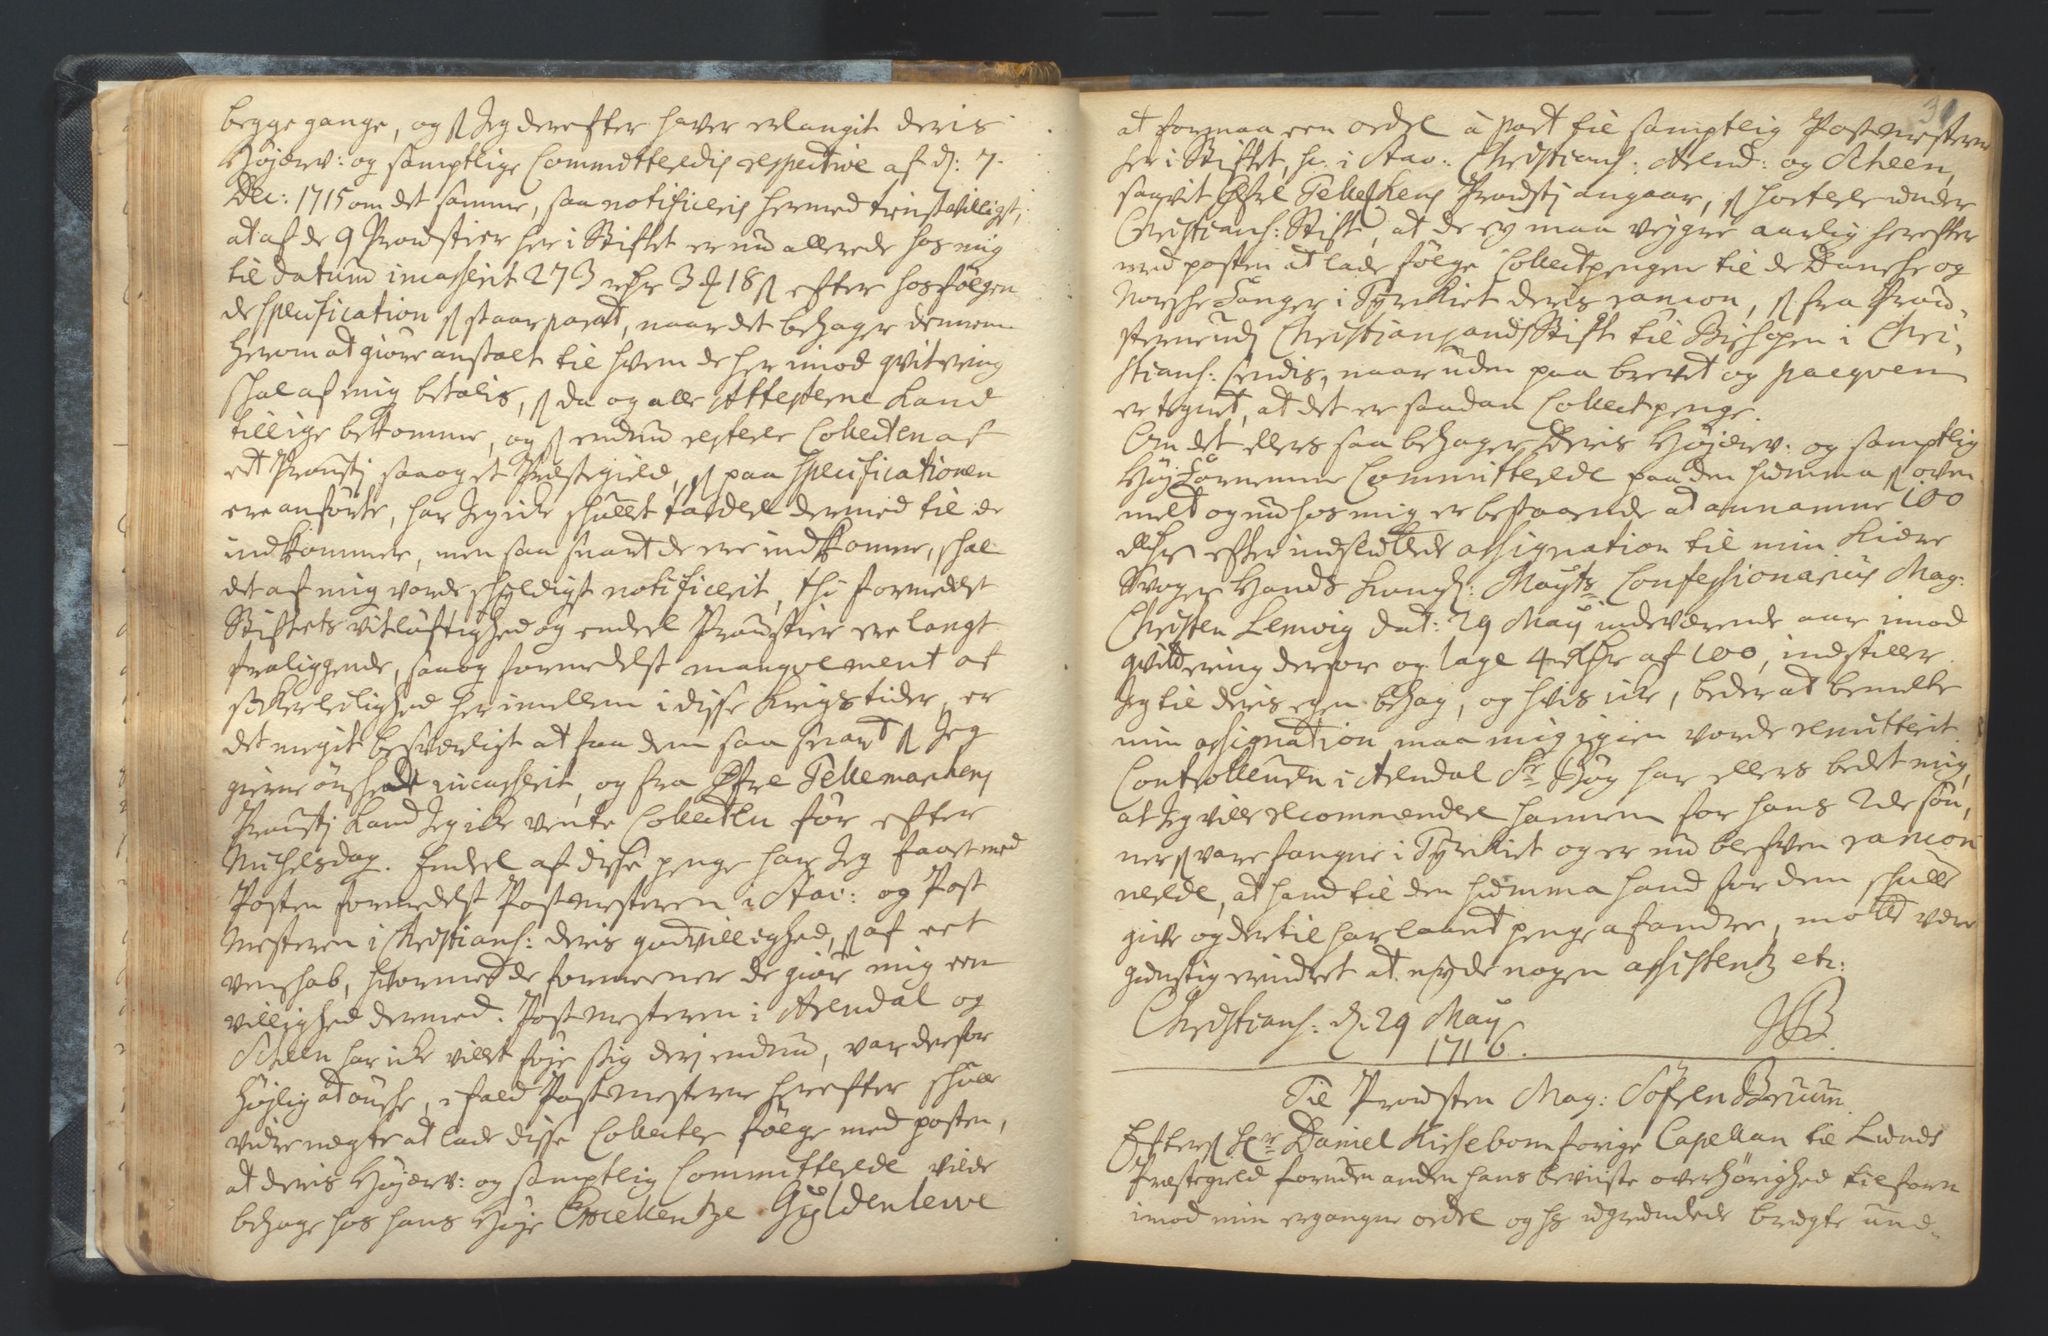 begge gange, og s. Jeg derefter haver erlanget deris
Højærv: og samptlige Committeredis respective af d: 7.
Dec: 1715 om det samme, saa notificeris hermed tienstvilligst,
at af de 9 Prowstier her i Stiftet er nu allerede hos mig
til datum incasserit 273 rdr 3 ₰ 18 s efter hosfølgen
de specification s. staar parat, naar det behager dennem
herom at giøre anstalt til hvem de her imod qvitering
skal af mig betalis, s. da og alle Attesterne kand
tillige bekomme, og s. endnu restere Collecten af
et Prousti saa og et Præstegield, s. paa specificationen
ere anførte, har Jeg icke skullet tardere dermed til de
indkommer, men saa snart de ere indkomne, skal
det af mig vorde skyldigst notificerit, thi formedelst
Stiftets vitløftighed og endeel Proustier ere langt
fraliggende, saa og formedelst manqvement af
sicker leilighed her imellem i disse Krigs tider, er
det megit besværligt at faa dem saa snart s. Jeg
gierne ønskede incasserit, og fra Øfre Tellemarkens
Prousti kand Jeg icke vente Collecten før efter
Michelsdag. Endeel af disse penge har Jeg faaet med
Posten formedelst Postmesteren i Stav: og Post
mesteren i Christians: deris godvillighed, s. af ret
venskab, hvormed de formeener de giør mig een
villighed dermed. Postmesteren i Arendal og
Scheen har icke villet føje sig deri endnu, var derfor
højlig at ønske, i fald Postmesterne herefter skulle
vidre negte at lade disse Collecter følge med posten,
at deris Højærv: og samptlig Committerede vilde
behage hos hans Høje Excellentze Gyldenlewe
at formaa een ordre à part til samptlig Postmesterne
her i Stiftet, sc. i Stav: Christians: Arend: og Scheen,
saavit Øfre Tellemkens Prowsti angaar, s. sorterer under
Christians: Stift, at de ey maa veygre aarlig herefter
med posten at lade følge Collectpengene til de Danske og
Norske Fanger i Tyrckiet deris rancon, s. fra Prow-
sterne udj Christiansands Stift til Bishopen i Chri-
stians: sendis, naar uden paa brevet og pacqven
er tegnet, at det er saadan Collectpenge.
Om det ellers saa behager Deris Højærv: og samptlig
Høj Fornemme Committerede paa den summa s. oven
melt og nu hos mig er bestaaende at annamme 100
rdr efter indsluttede assignation til min kiære
Svoger Hands Kongl: Mayts Confessionarius Mag:
Christen Lemvig dat: 29 May indeværende aar imod
qvittering derfor og lage 4 rdr af 100, indstiller
Jeg til deris egen behag, og hvis icke, beder at bemelte
min assignation maa mig igien vorde remitterit.
Controlleuren i Arendal Sr Høg har ellers bedet mig,
at Jeg ville recommendere hannem for hans 2de søn,
ner s. vare fangne i Tyrckiet og er nu blefven rancon
nerede, at hand til den summa hand for dem skulle
give og dertil har laant penge af andre, motte være
gunstig erindret at nyde nogen assistentz etc:
Christians: d: 29 May
1716.
JB.
Til Provsten Mag: Søfren Bruun.
Efters. Hr. Daniel Kissebom forige Capellan til Lunds
Præstegield foruden anden hans beviiste overhørighed tilforn
imod min ergangne ordre og hs ugrundede brugte und-